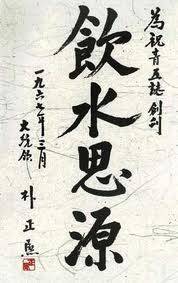 為祝青五誌創刊
飲水思源
一九六七年三月
大統領
朴正熙